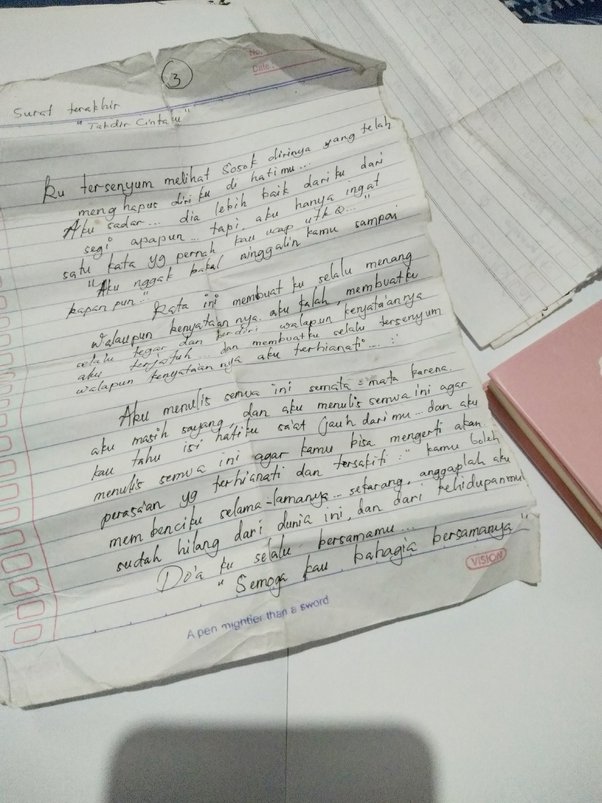 3
No:
Date:
Surat terakhir
"Takdir Cintaku"
Ku tersenyum melihat sosok dirinya yang telah
menghapus diri ku di hatimu...
Aku sadar... dia lebih baik dariku dari
segi apapun... tapi, aku hanya ingat
satu kata yg pernah kau ucap utk Q..."
"Aku nggak bakal ninggalin kamu sampai
kapan pun..."
Kata ini membuat ku selalu menang
walaupun kenyataannya aku kalah, membuatku
selalu tegar dan berdiri walapun kenyataannya
aku terjatuh... dan membuatku selalu tersenyum
walapun kenyataannya aku terhianati...
Aku menulis semua ini semata-mata karena
aku masih sayang, dan aku menulis semua ini agar
kau tahu isi hatiku saat jauh darimu... dan aku
menulis semua ini agar kamu bisa mengerti akan
perasaan yg terhianati dan tersakiti :" kamu boleh
membenciku selama-lamanya... sekarang, anggaplah aku
sudah hilang dari dunia ini, dan dari kehidupanmu
Do'a ku selalu bersamamu...
"Semoga kau bahagia bersamanya"
VISION
A pen migntier than a sword